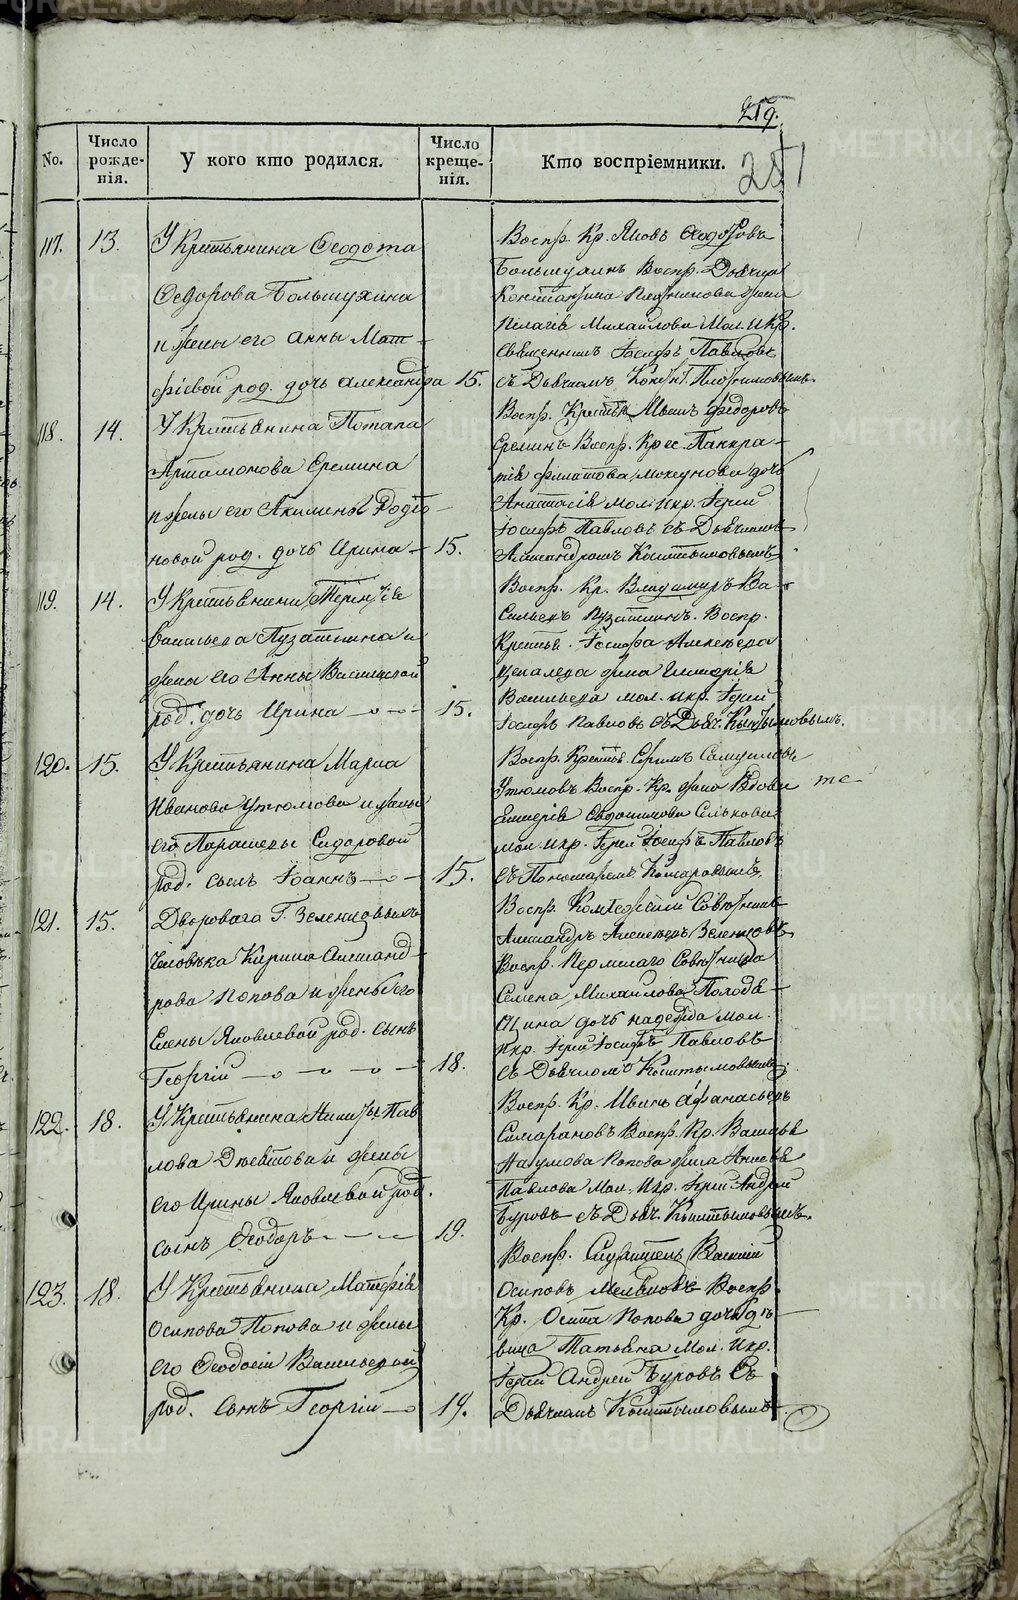 219.
251
No.
Число рожде-нія.
У кого кто родился.
Число креще-нія.
Кто воспріемники.
117.
13.
У Крестьянина Ѳеодота
Ѳедорова Большухина
и жены его Анны Мат-
фіевой род. дочь Александра
15.
Воспр. Кр. Яковъ Ѳеодоровъ
Большухинъ Воспр. Дьячка
Константина Плотникова жена
Пелагія Михайлова Мол. и Кр.
Священникъ Іосифъ Павловъ
съ Дьячкомъ Конст. Плотниковымъ.
118.
14.
У Крестьянина Потапа
Артамонова Еремина
и жены его Акилины Родіо-
новой род. дочь Ирина
15.
Воспр. Крестья. Иванъ Федоровъ
Ереминъ Воспр. Крес. Панкра-
тія Филатова дочь
Анастасія мол. и кр. Іерей
Іосифъ Павловъ съ Дьячкомъ
Александромъ Кыштымовымъ
119.
14.
У Крестьянина Терентія
Васильева Пузаткина и
жены его Анны Васильевой
род. дочь Ирина
15.
Воспр. Кр. Владимиръ Ва-
сильевъ Пузаткинъ. Воспр.
Крестья. Іосифа Алексеева
жена Гликерія
Васильева мол. и кр. Іерей
Іосифъ Павловъ съ Дьяч. Кыштымовымъ.
120.
15.
У Крестьянина Марка
Иванова Утюмова и жены
его Параскевы Сидоровой
род. сынъ Іоаннъ
15.
Воспр. Крестья. Самуиловъ
Утюмовъ Воспр. Кр. жена Вдова
Гликерія Евдокимова Селькова
мол. и кр. Іерей Іосифъ Павловъ
съ Пономаремъ Комаровымъ.
121.
15.
Двороваго Г. Зеленцовыхъ
Человѣка Кирила Александ-
рова Попова и жены его
Елены Яковлевой род. сынъ
Георгій
18.
Воспр. Совѣтникъ
Александръ Алексеевъ Зеленцовъ
Воспр. Пермскаго Совѣтника
Семена Михайлова Полодѣ-
щина дочь Надежда мол.
и кр. Іерей Іосифъ Павловъ
съ Дьячкомъ Кыштымовымъ
122.
18.
У Крестьянина Никиты Пав-
лова и жены
его Ирины Яковлевой род.
сынъ Ѳеодоръ
19.
Воспр. Кр. Иванъ Афанасьевъ
Воспр. Кр. Василья
Наумова Попова жена Анисья
Павлова Мол. и Кр. Іерей Андрей
Буровъ съ Дьяч. Кыштымовымъ.
123.
18.
У Крестьянина Матфія
Осипова Попова и жены
его Ѳеодосіи Васильевой
род. сынъ Георгій
19.
Воспр. Служитель Василій
Осиповъ Воспр.
Кр. Осипа Попова дочь Дѣ-
вица Татьяна Мол. и Кр.
Іерей Андрей Буровъ съ
Дьячкомъ Кыштымовымъ
METRIKI.GASO-URAL.RU